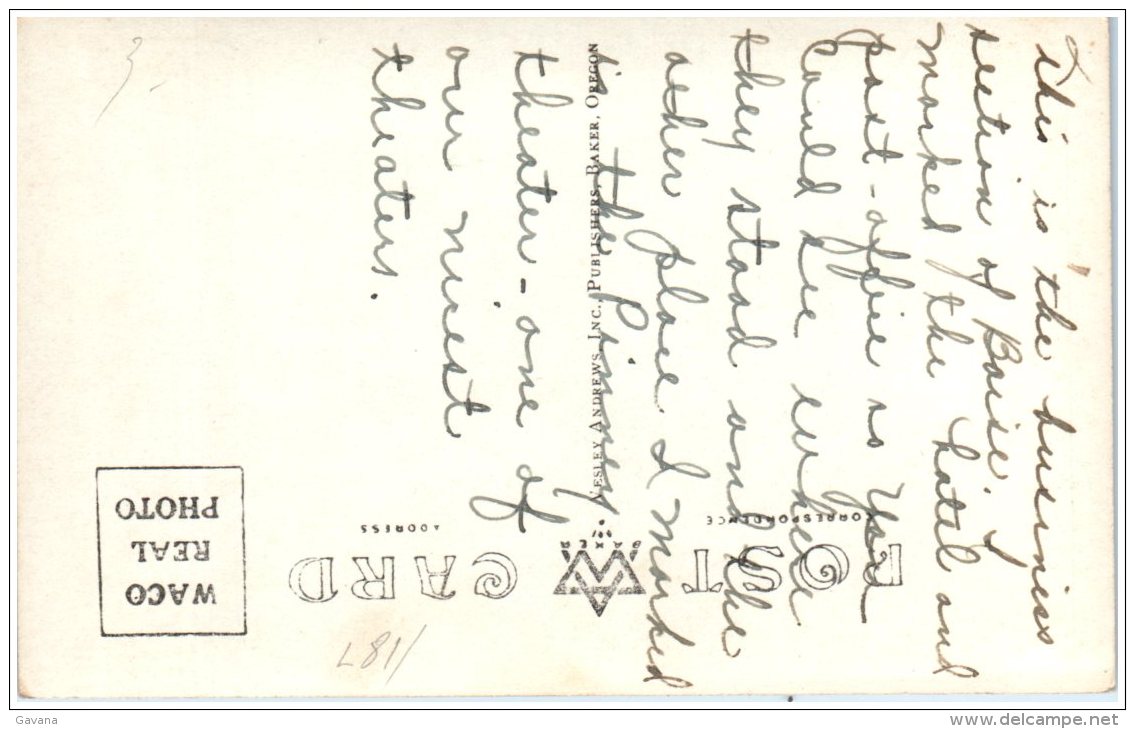 This is the business
section of Boise. I
marked the hotel and
post-office so you
could see where
they stood and the
other place I marked
is the Pinney
theater - one of
our nicest
theaters.
POST CARD
CORRESPONDENCE
ADDRESS
BAKER
WESLEY ANDREWS, INC., PUBLISHERS, BAKER, OREGON
WACO
REAL
PHOTO
3
Gavana
www.delcampe.net